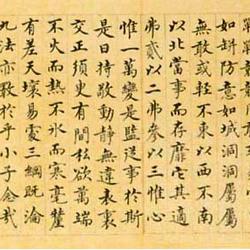 如缾防意如城洞洞屬屬
無敢或輕不東以西不南
以北當事而存靡它其適
弗貳以二弗參以三惟心
惟一萬變是監從事於斯
是曰持敬動靜無違表裏
交正須臾有間私欲萬端
不火而熱不冰而寒毫釐
有差天壤易處三綱既淪
九法亦斁於乎小子念哉